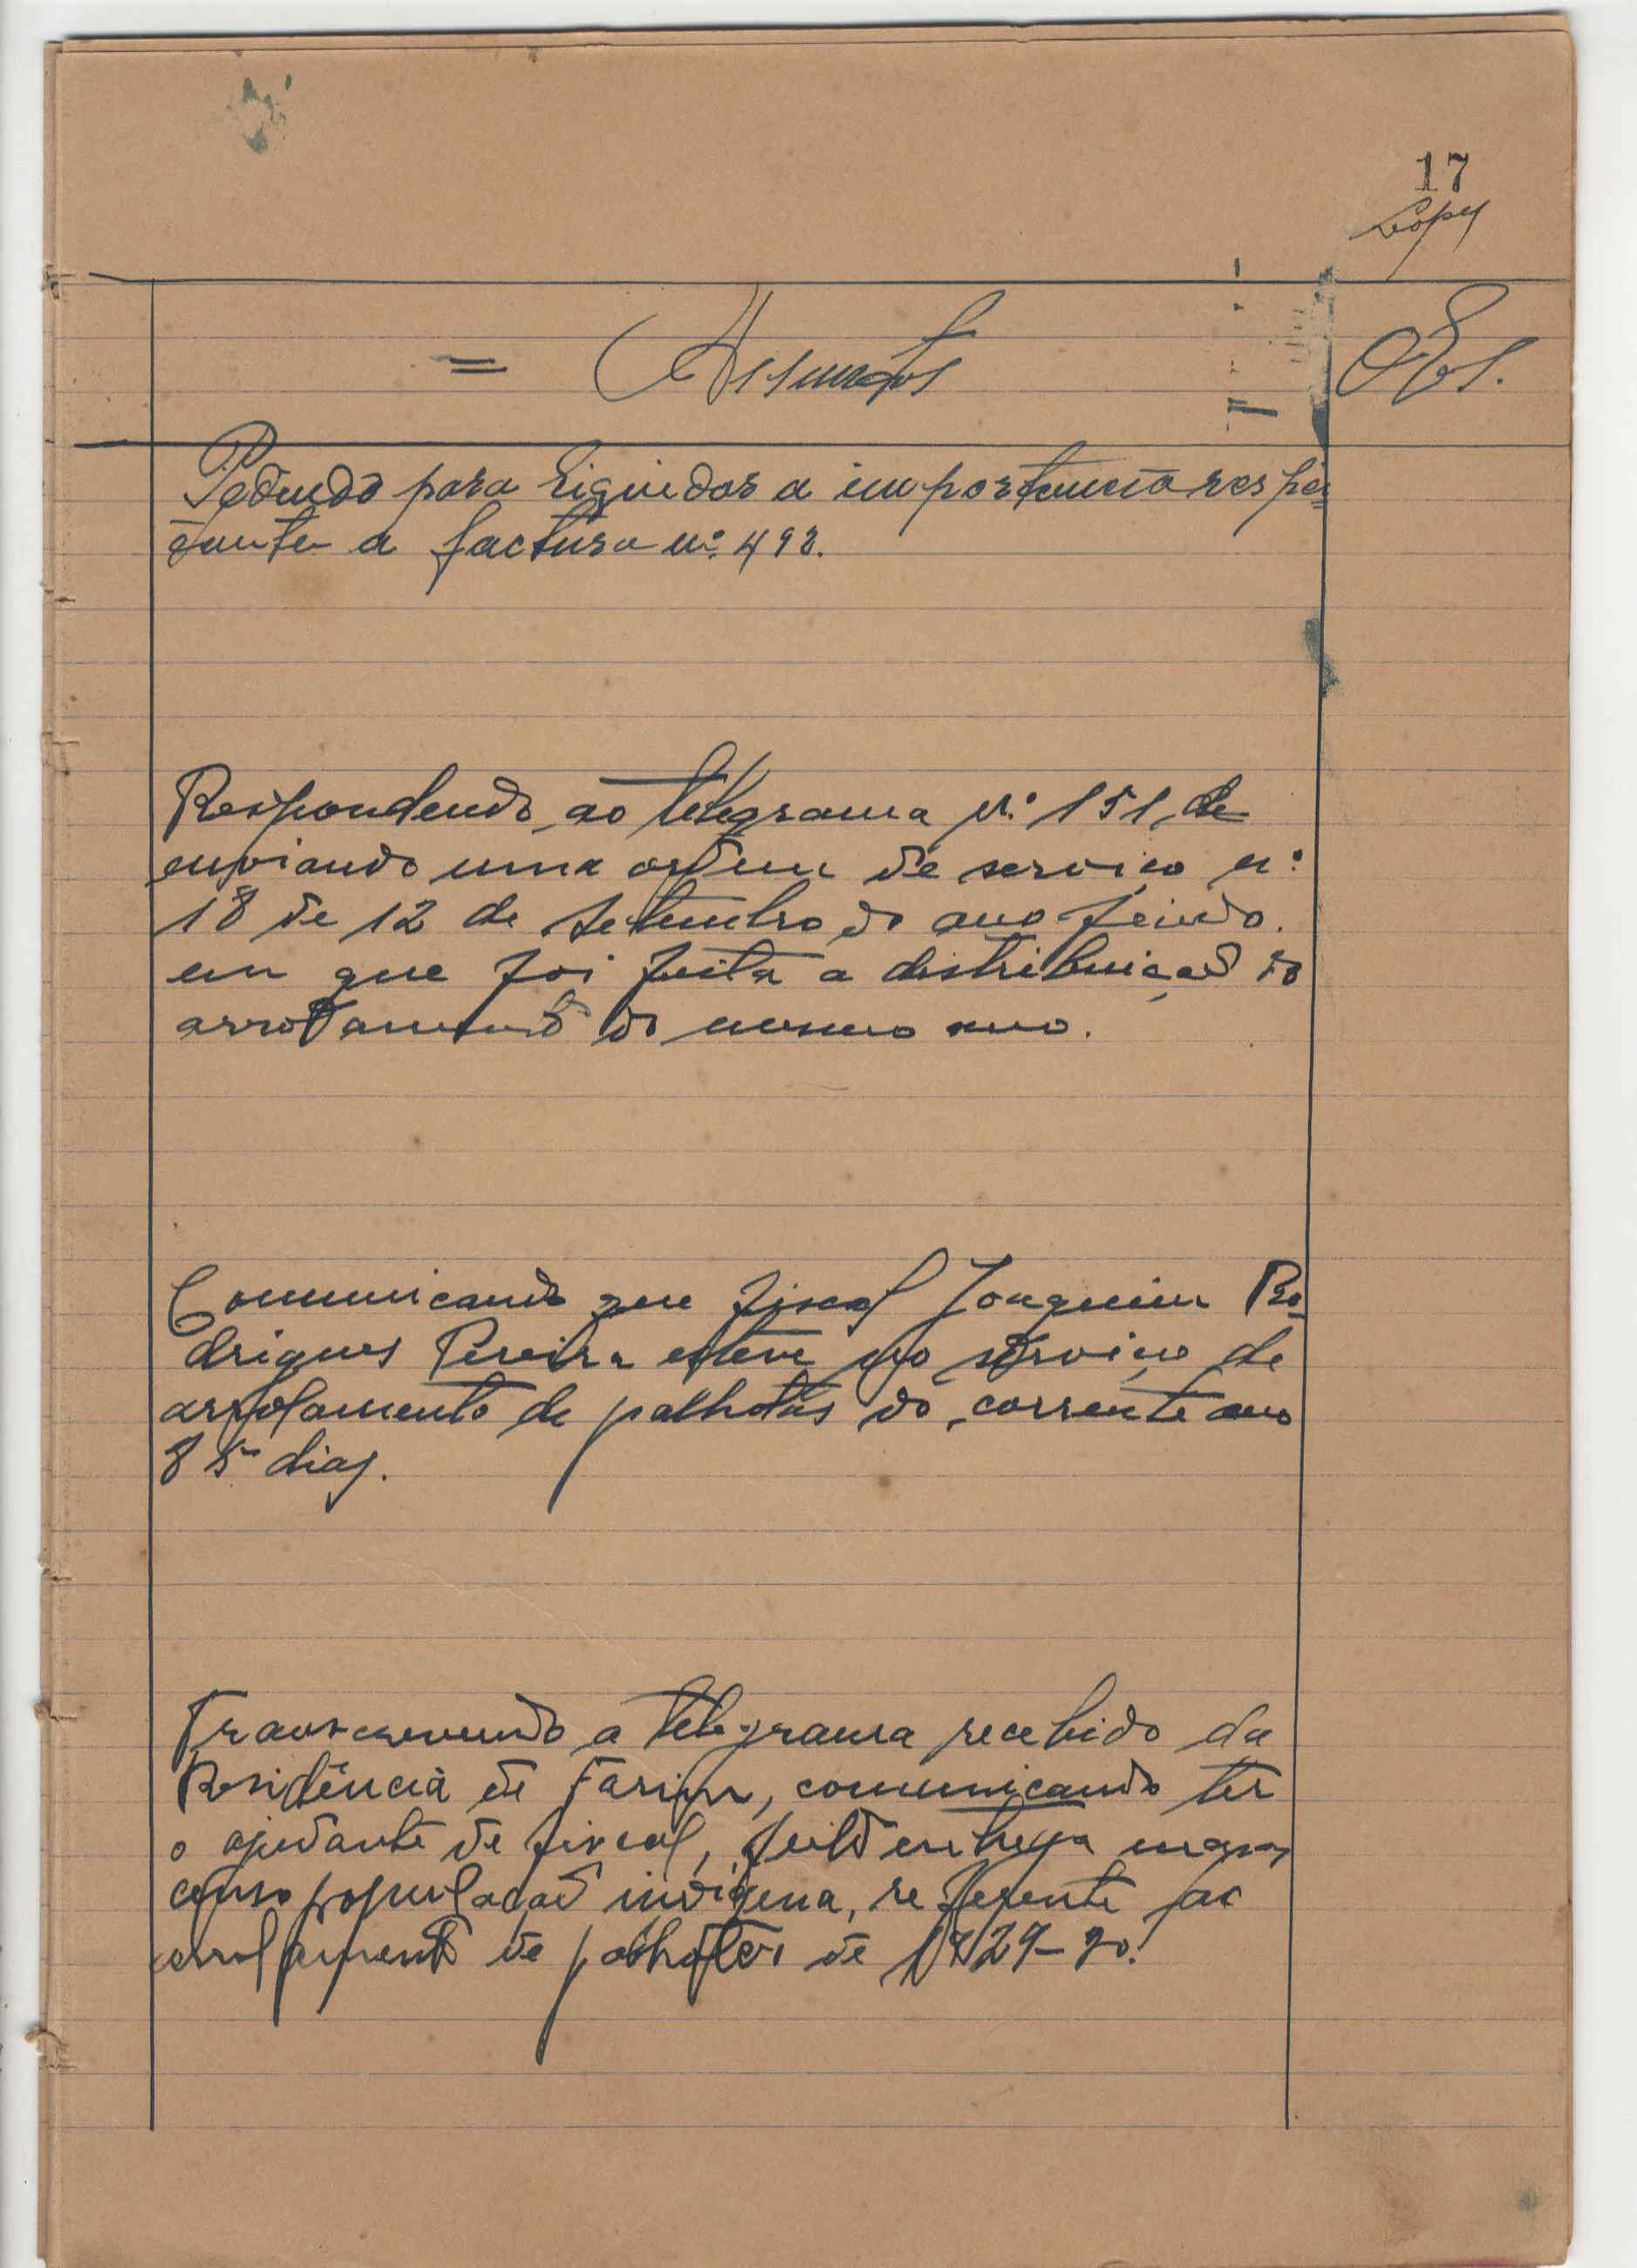 17
Lopes
= Assuntos
Obs.
Pedindo para liquidar a importancia respei=
tante a factura nº 493.
Respondendo ao telegrama Nº 151, de
enviando uma ordem de serviço nº
18 de 12 de Setembro do ano findo.
em que foi feita a distribuição do
arrolamento do mesmo ano.
Comunicando que fiscal Joaquim Ro-
drigues Pereira esteve no serviço de
arrolamento de palhotas do corrente ano
85 dias.
Transcrevendo a telegrama recebido da
Residência de Farim, comunicando ter
o ajudante de fiscal, feito entrega
censo população indígena, referente ao
arrolamento de palhotas de 1929-30.